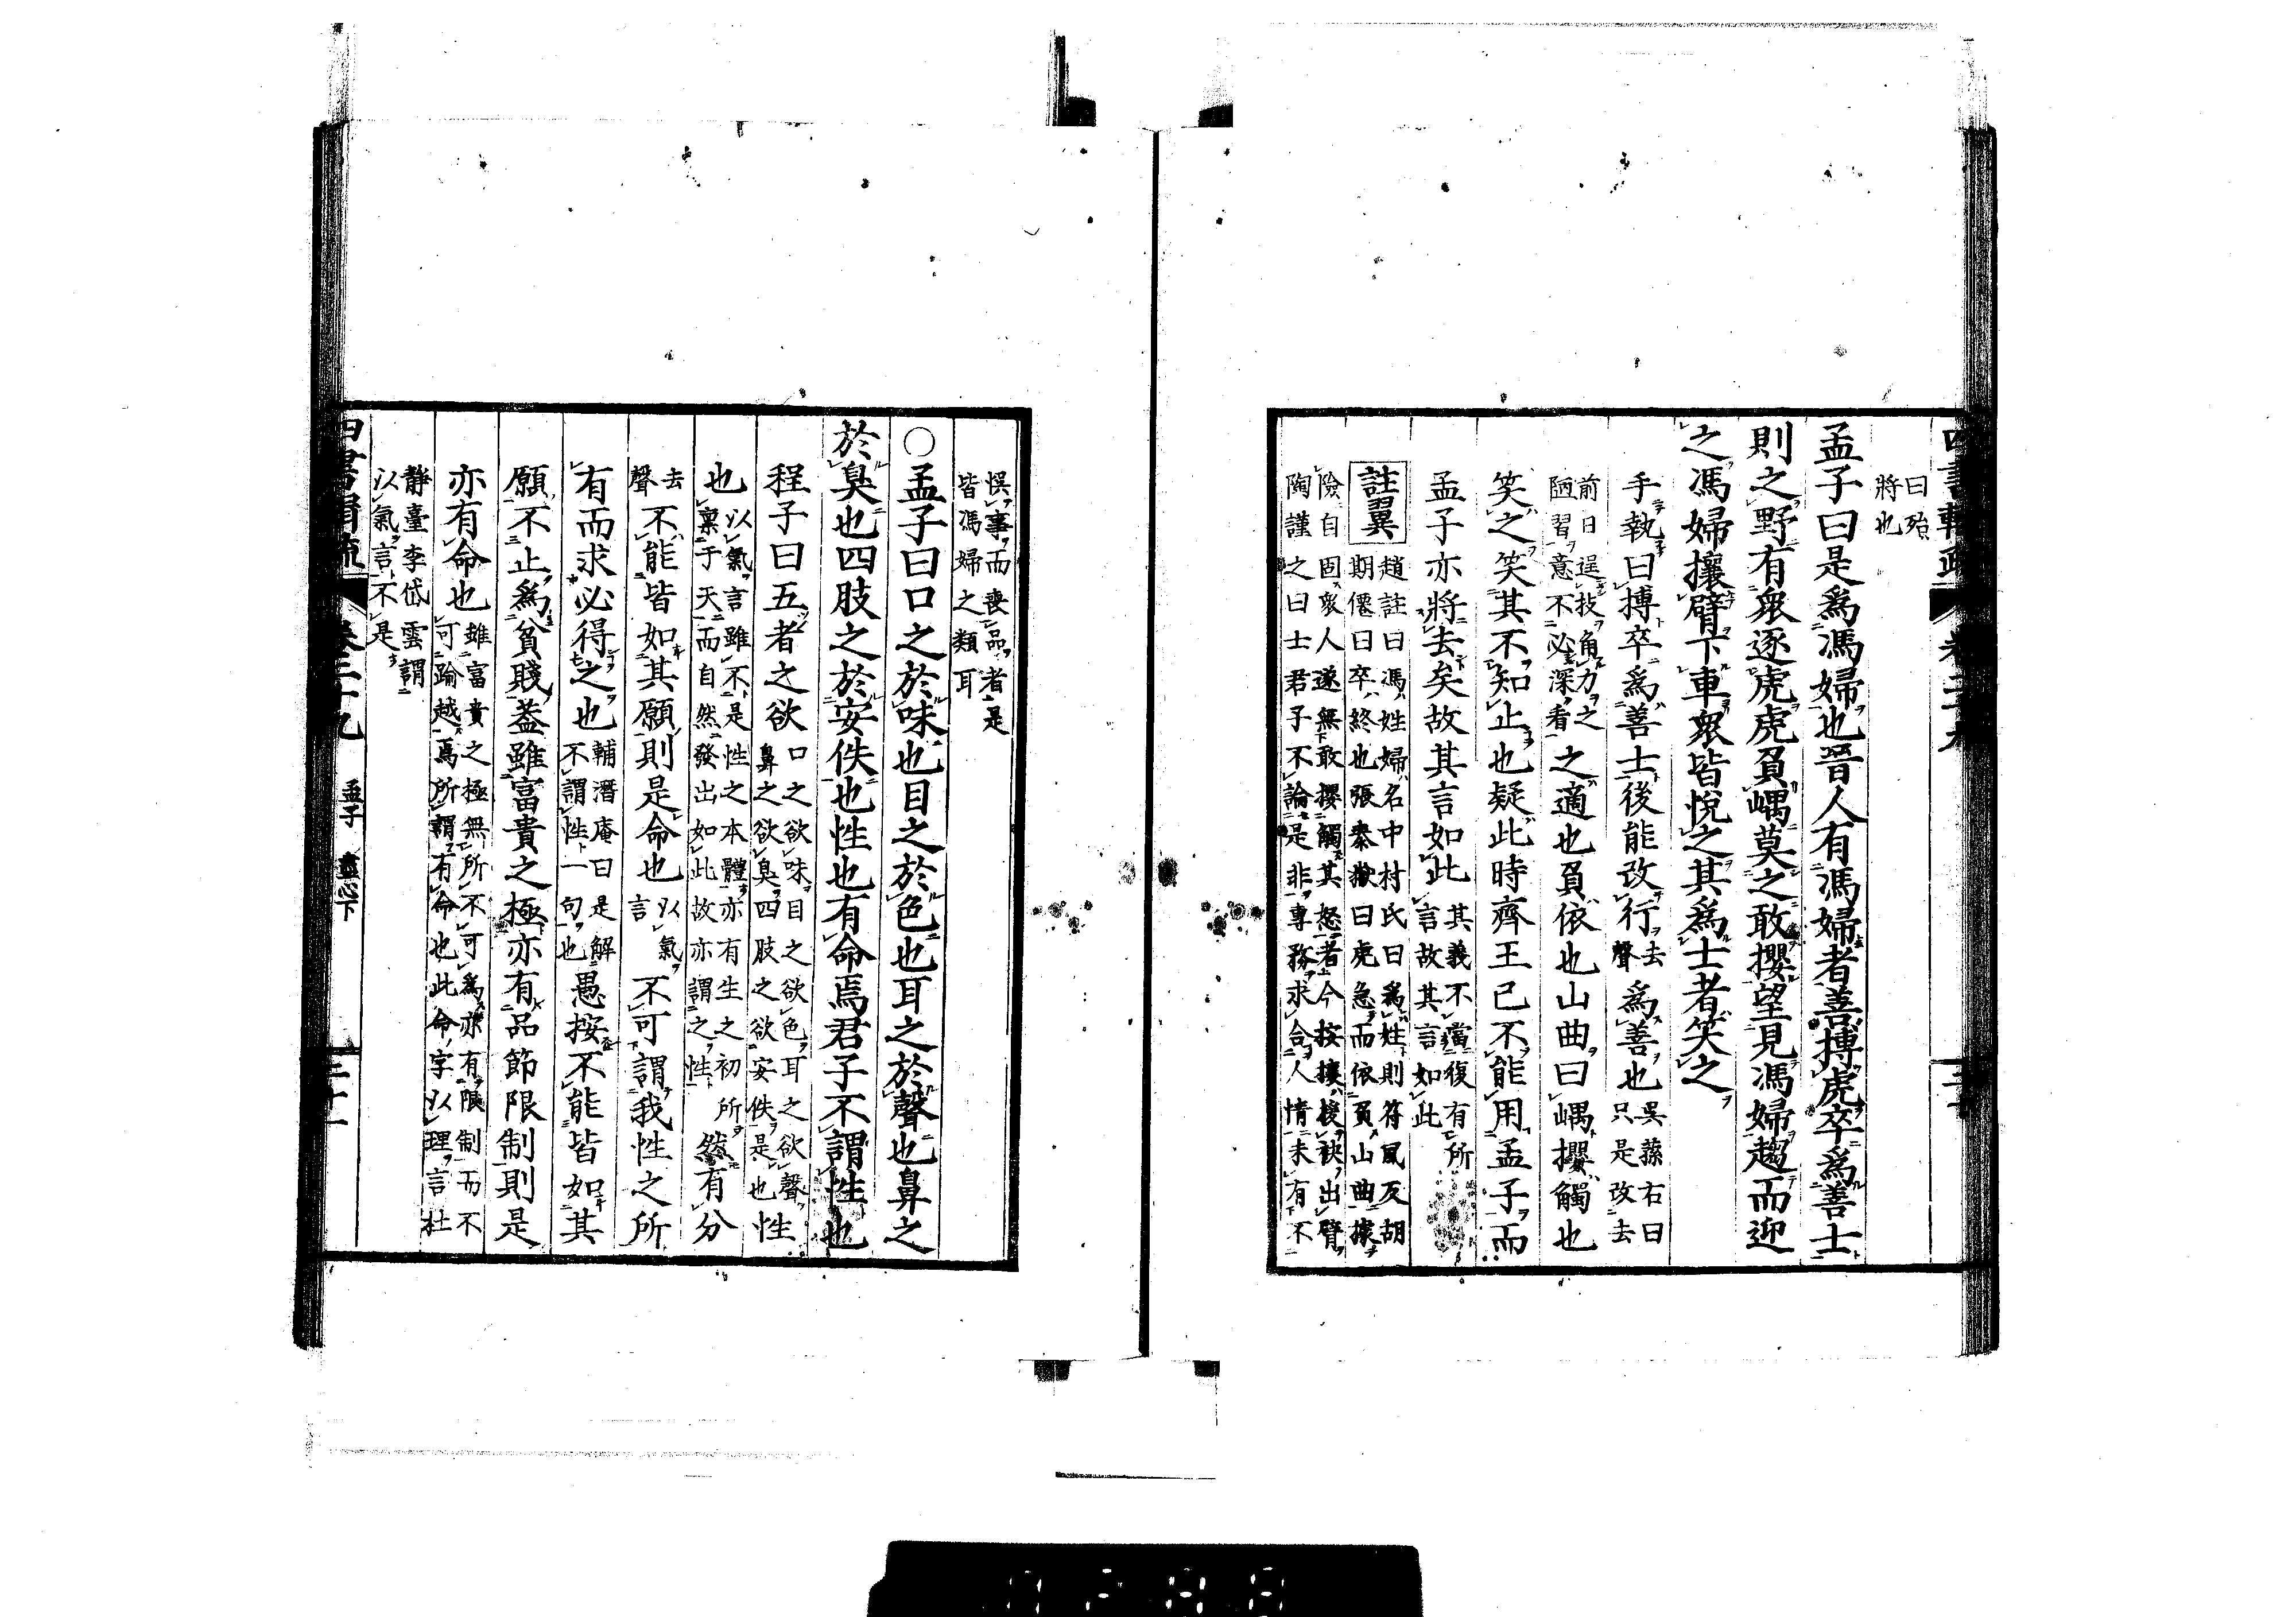 四書輯疏 卷二十九
曰殆
將也
孟子曰是爲馮婦也晉人有馮婦者善搏虎卒爲善士
則之野有衆逐虎虎負嵎莫之敢攖望見馮婦趨而迎
之馮婦攘臂下車衆皆悅之其爲士者笑之
手執曰搏卒爲善士後能改行
去
聲
爲善也
吳蓀右曰
只是改去
前日逞技角力之
陋習意不必深看
之適也負依也山曲曰嵎攖觸也
笑之笑其不知止也疑此時齊王已不能用孟子而
孟子亦將去矣故其言如此
其義不當復有所
言故其言如此
註翼
趙註曰馮姓婦名中村氏曰爲姓則符風反胡
期僊曰卒終也張泰嶽曰虎急而依負山曲據
險自固衆人遂無敢攖觸其怒者今按攘援袂出臂
陶謹之曰士君子不論是非專務求合人情未有不
悞事而喪品者是
皆馮婦之類耳
○孟子曰口之於味也目之於色也耳之於聲也鼻之
於臭也四肢之於安佚也性也有命焉君子不謂性也
程子曰五者之欲
口之欲味目之欲色耳之欲聲
鼻之欲臭四肢之欲安佚是也
性
也
以氣言雖不是性之本體亦有生之初所
稟于天而自然發出如此故亦謂之性
然有分
去
聲
不能皆如其願則是命也
以氣
言
不可謂我性之所
有而求必得之也
輔潛庵曰是解
不謂性一句也
愚按不能皆如其
願不止爲貧賤葢雖富貴之極亦有品節限制則是
亦有命也
雖富貴之極無所不可爲亦有限制而不
可踰越焉所謂有命也此命字以理言杜
靜臺李岱雲謂
以氣言不是
四書輯疏 卷二十九 孟子 盡心下 三十一